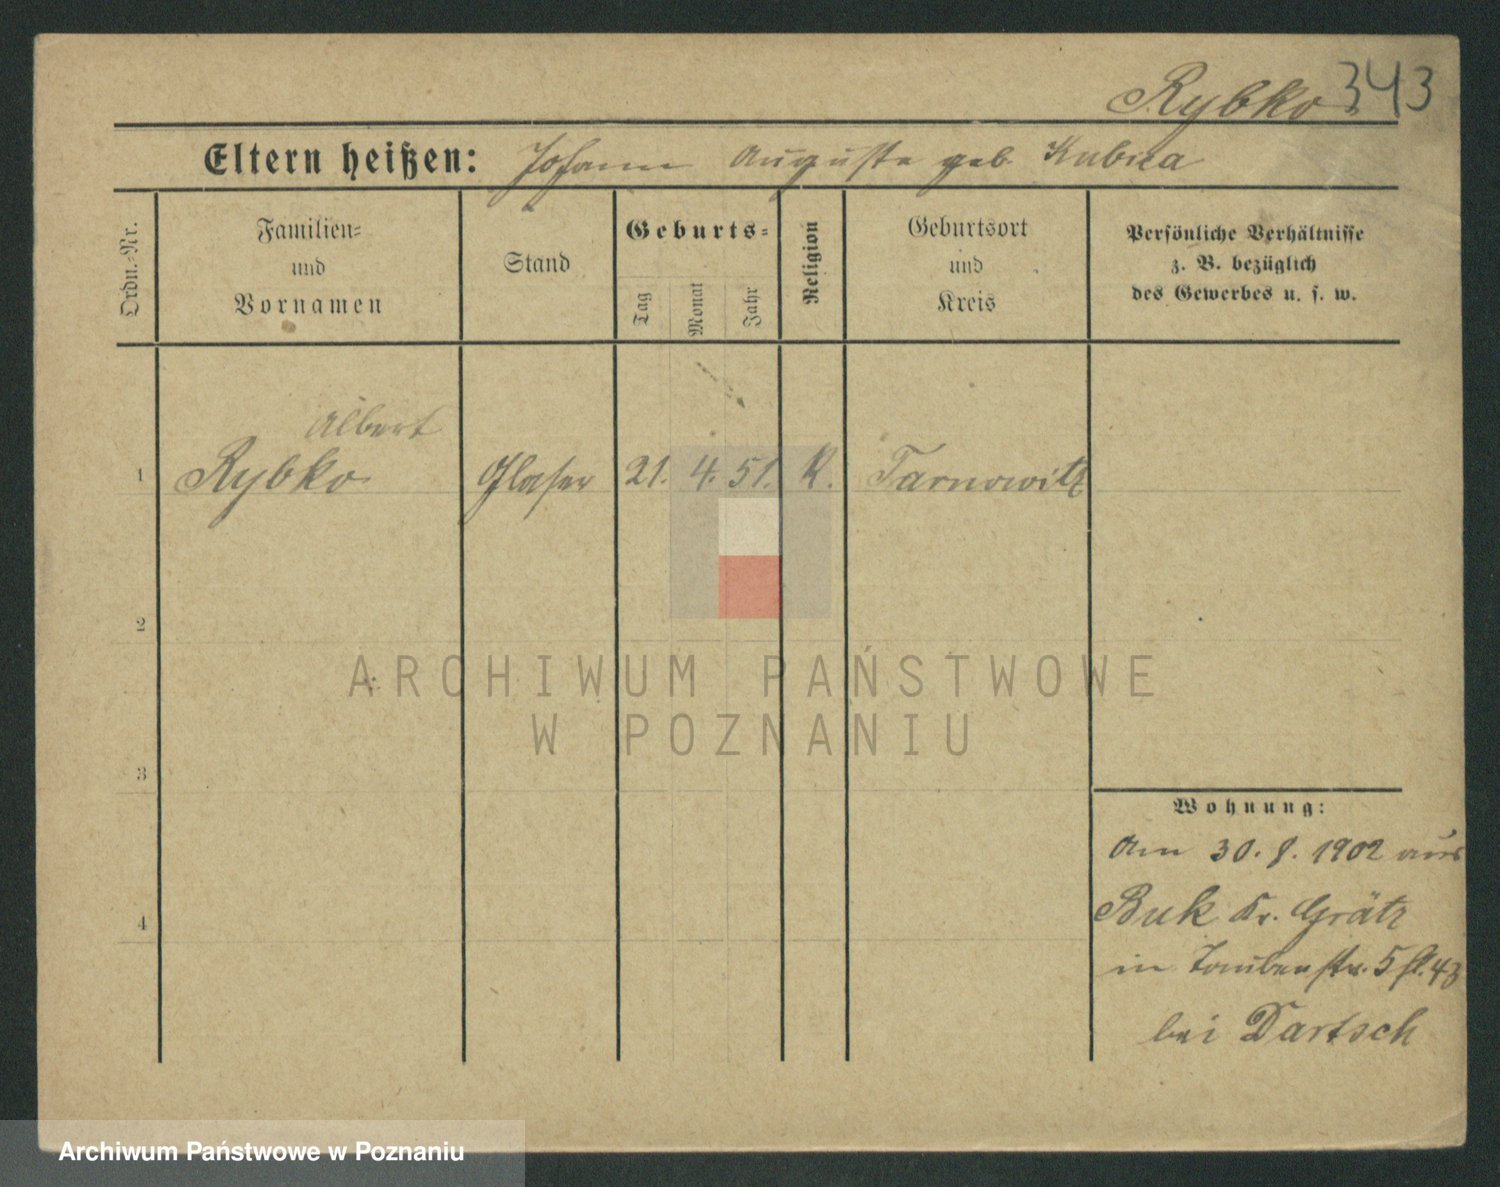 343
Rybko
Eltern heißen: Johann Auguste geb Kubica
Ordn.-Nr.
Familien-
und
Vornamen
Stand
Geburts-
Tag
Monat
Jahr
Religion
Geburtsort
und
Kreis
Persönliche Verhältnisse
z. B. bezüglich
des Gewerbes u. s. w.
Albert
1 Rybko Glaser 21. 4. 51. K. Tarnowitz
2
3
4
ARCHIWUM PAŃSTWOWE
W POZNANIU
Wohnung:
Am 30. 8. 1902 aus
Buk Kr. Grätz
in Taubenstr. 5
bei Dartsch
Archiwum Państwowe w Poznaniu